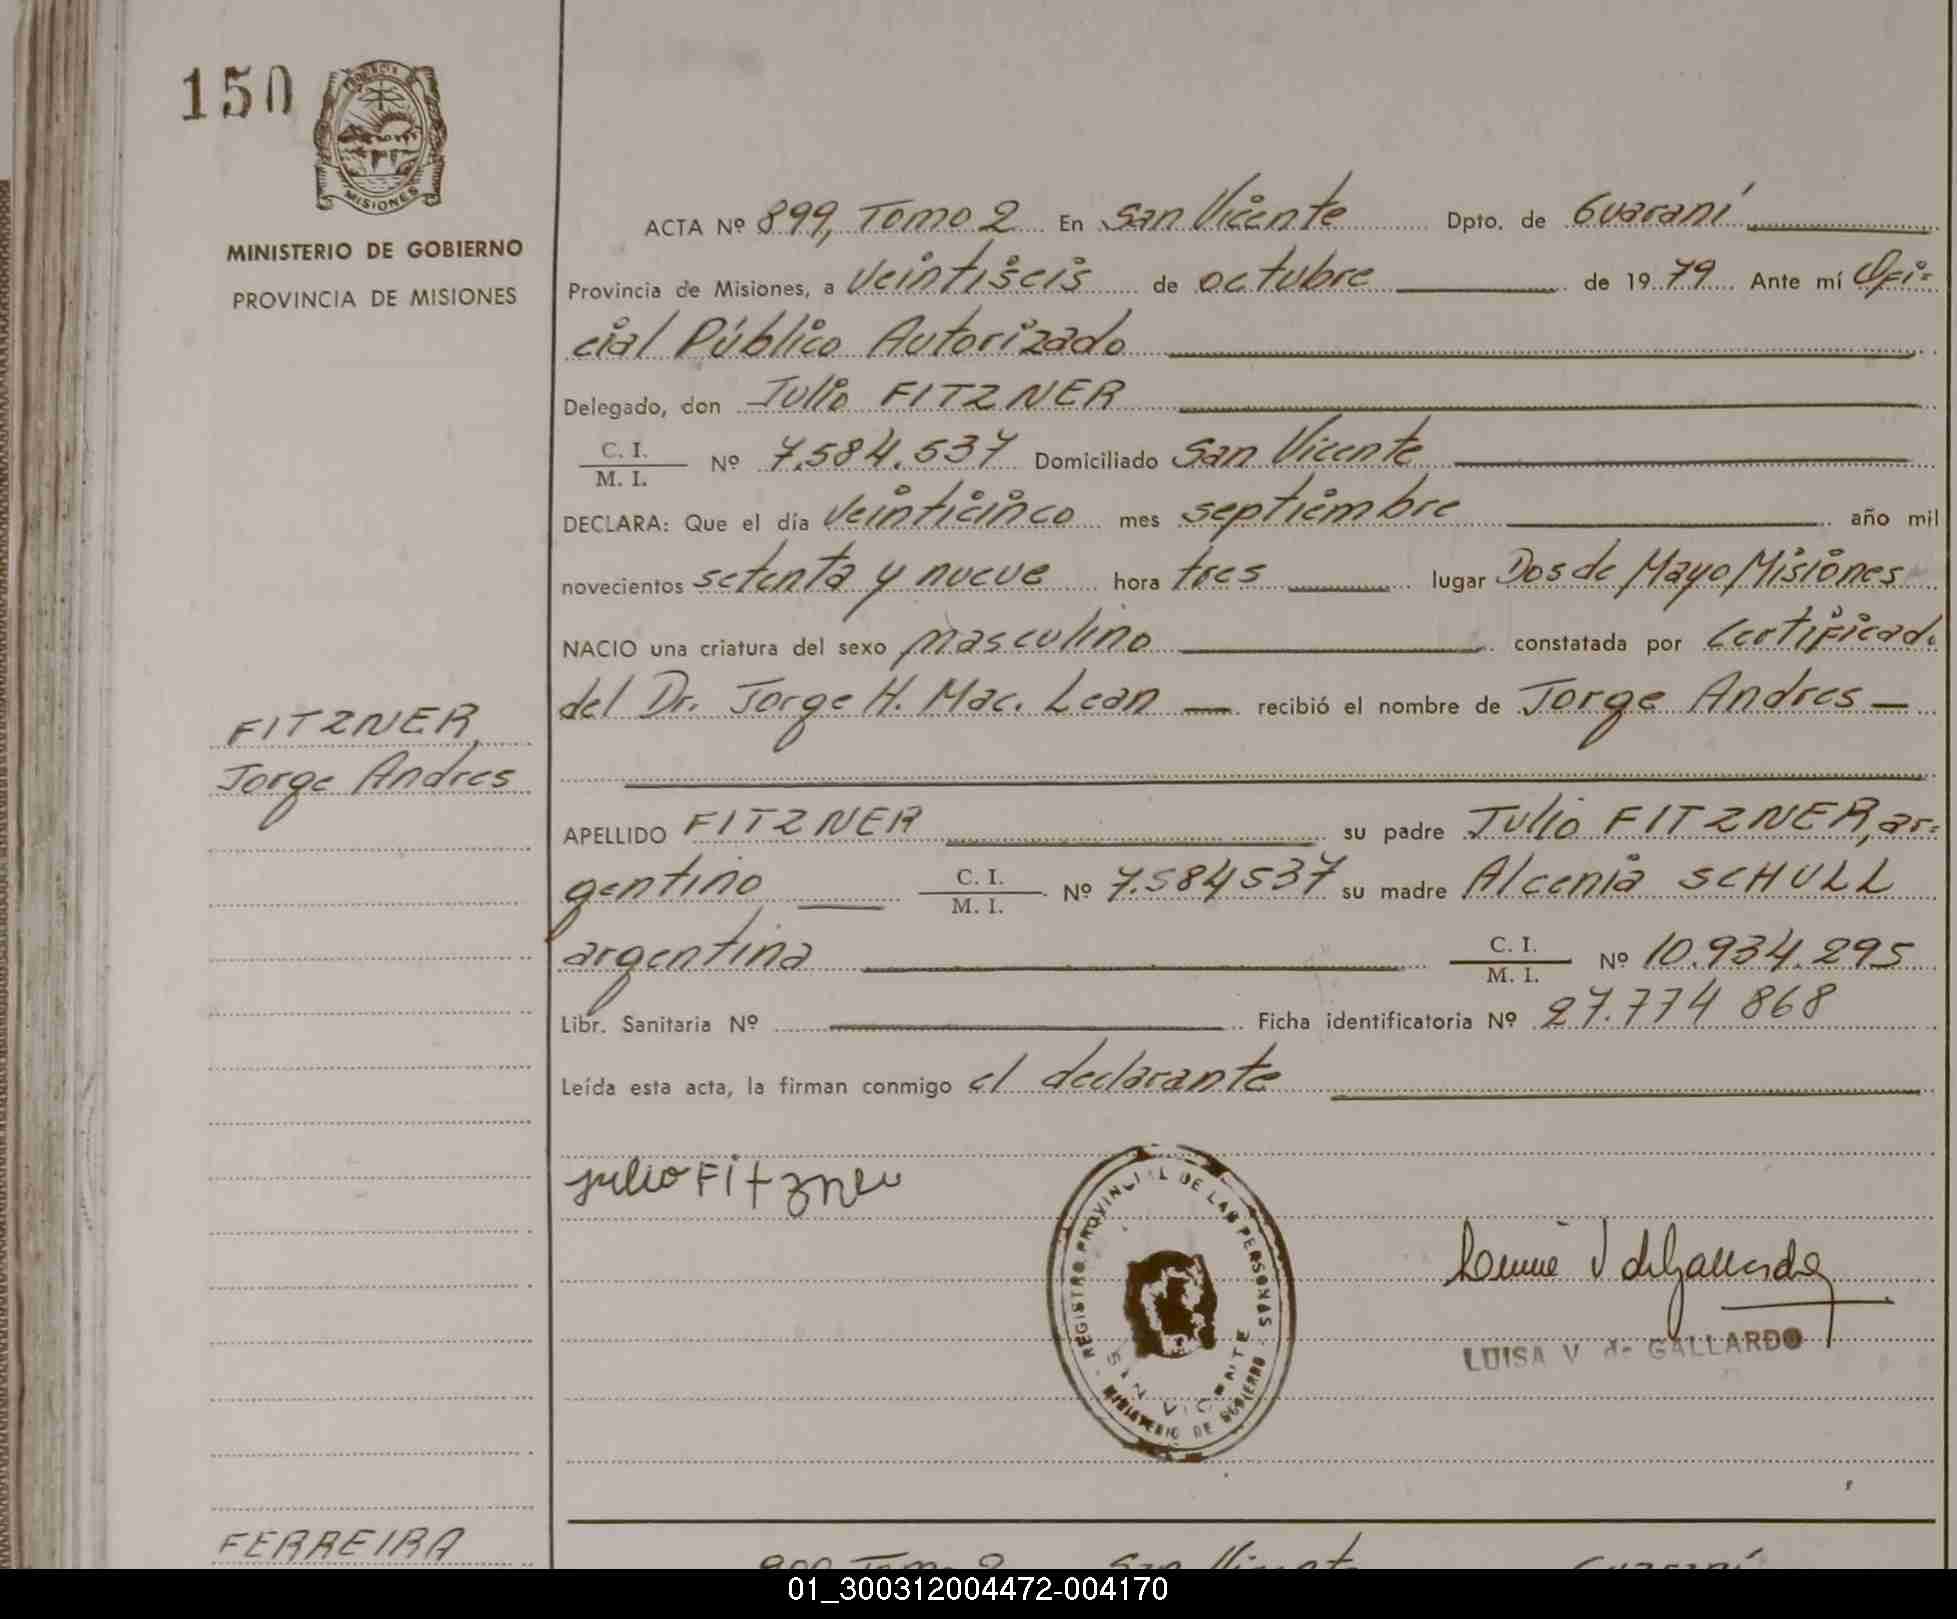 150
PROVINCIA DE
MISIONES
MINISTERIO DE GOBIERNO
PROVINCIA DE MISIONES
ACTA Nº 899, Tomo 2 En San Vicente Dpto. de Guaraní
Provincia de Misiones, a veintiseis de octubre de 1979 Ante mí Ofi=
cial Público Autorizado
Delegado, don Julio FITZNER
C. I.
M. I. Nº 7.584.537 Domiciliado San Vicente
DECLARA: Que el día veinticinco mes septiembre año mil
novecientos setenta y nueve hora tres lugar Dos de Mayo, Misiones
NACIO una criatura del sexo masculino constatada por Certificado
del Dr. Jorge H. Mac. Lean recibió el nombre de Jorge Andres
FITZNER
Jorge Andres
APELLIDO FITZNER su padre Julio FITZNER, ar=
gentino C. I. M. I. Nº 7.584537 su madre Alcenia SCHULL
argentina C. I. M. I. Nº 10.934.295
Libr. Sanitaria Nº Ficha identificatoria Nº 27.774 868
Leída esta acta, la firman conmigo el declarante
julio Fitzner
REGISTRO PROVINCIAL DE LAS PERSONAS
SAN VICENTE
MINISTERIO DE GOBIERNO
LUISA V. de GALLARDO
FERREIRA
900 Tomo 2 San Vicente Guaraní
01_300312004472-004170